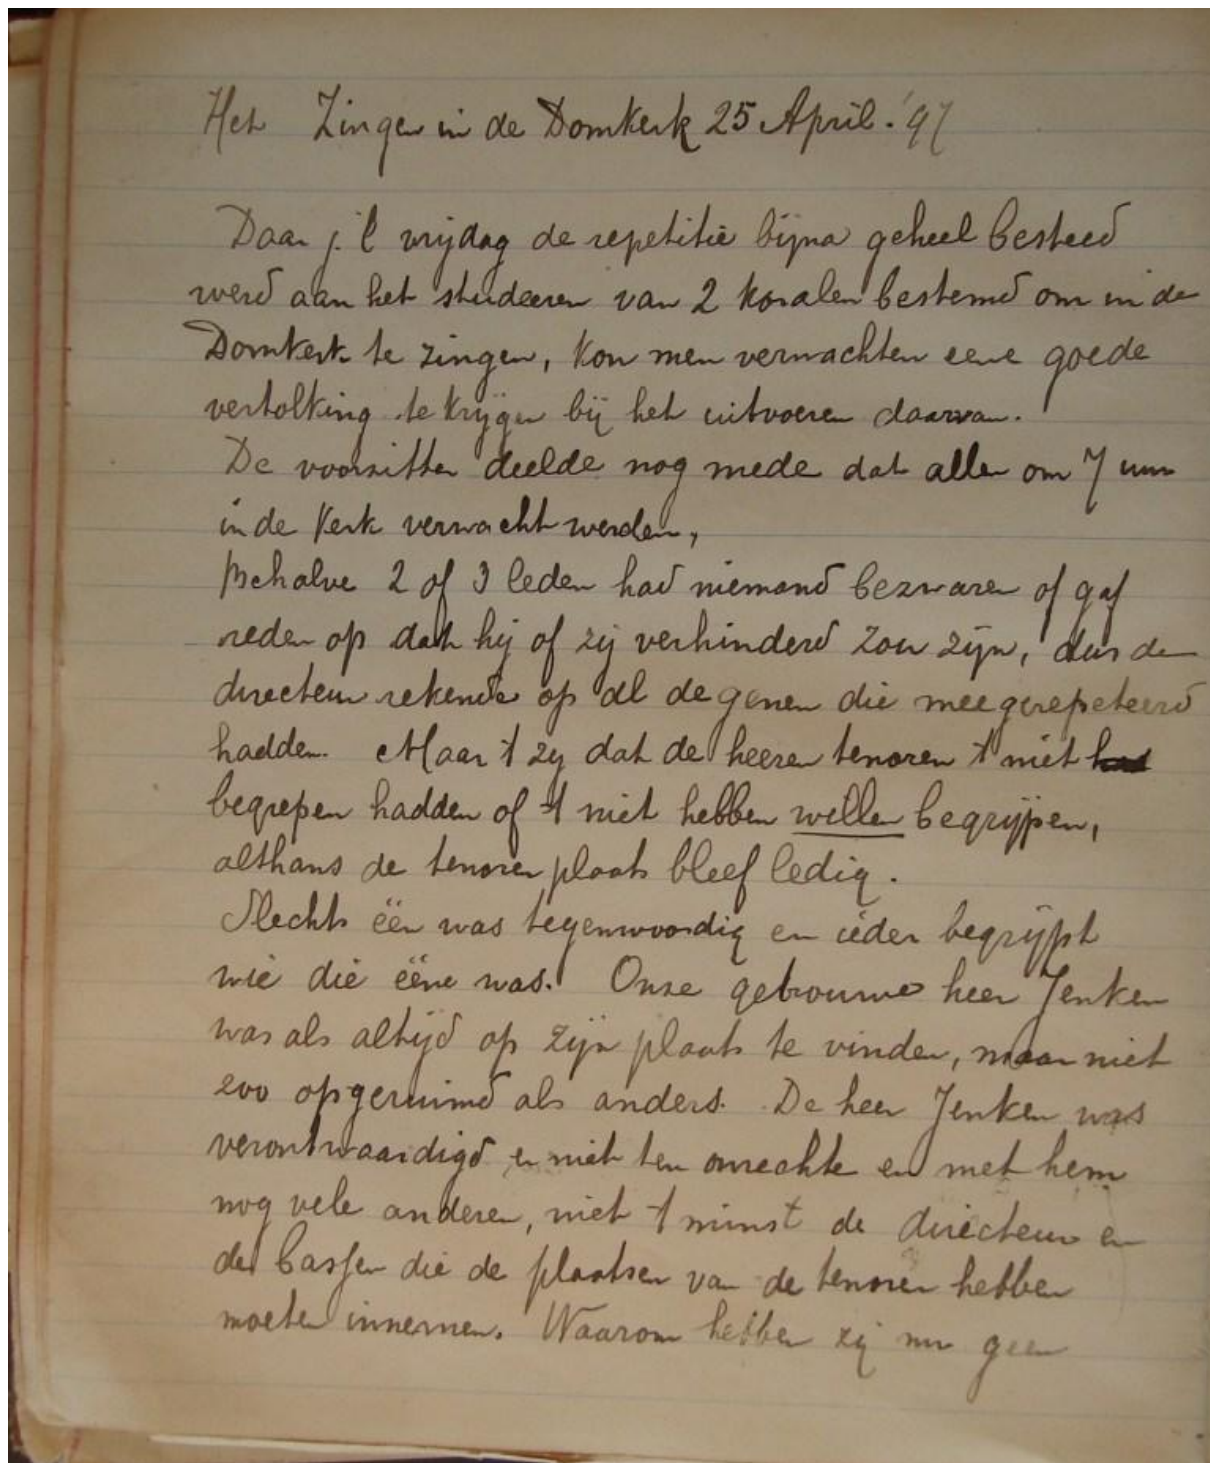 Het Zingen in de Domkerk 25 April. '97
Daar j.l vrijdag de repetitie bijna geheel besteed
werd aan het studeeren van 2 koralen bestemd om in de
Domkerk te zingen, kon men verwachten eene goede
vertolking te krijgen bij het uitvoeren daarvan.
De voorzitter deelde nog mede dat allen om 7 uur
in de Kerk verwacht werden,
Behalve 2 of 3 leden had niemand bezwaren of gaf
reden op dat hij of zij verhinderd zou zijn, dus de
directeur rekende op al de genen die meegerepeteerd
hadden. Maar 't zij dat de heeren tenoren 't niet had
begrepen hadden of 't niet hebben willen begrijpen,
althans de tenoren plaats bleef ledig.
Slechts één was tegenwoordig en ieder begrijpt
wie die ééne was. Onze getrouwe heer Jenken
was als altijd op zijn plaats te vinden, maar niet
zoo opgeruimd als anders. De heer Jenken was
verontwaardigd en niet ten onrechte en met hem
nog vele anderen, niet 't minst de directeur en
de bassen die de plaatsen van de tenoren hebben
moeten innemen. Waarom hebben zij nu geen